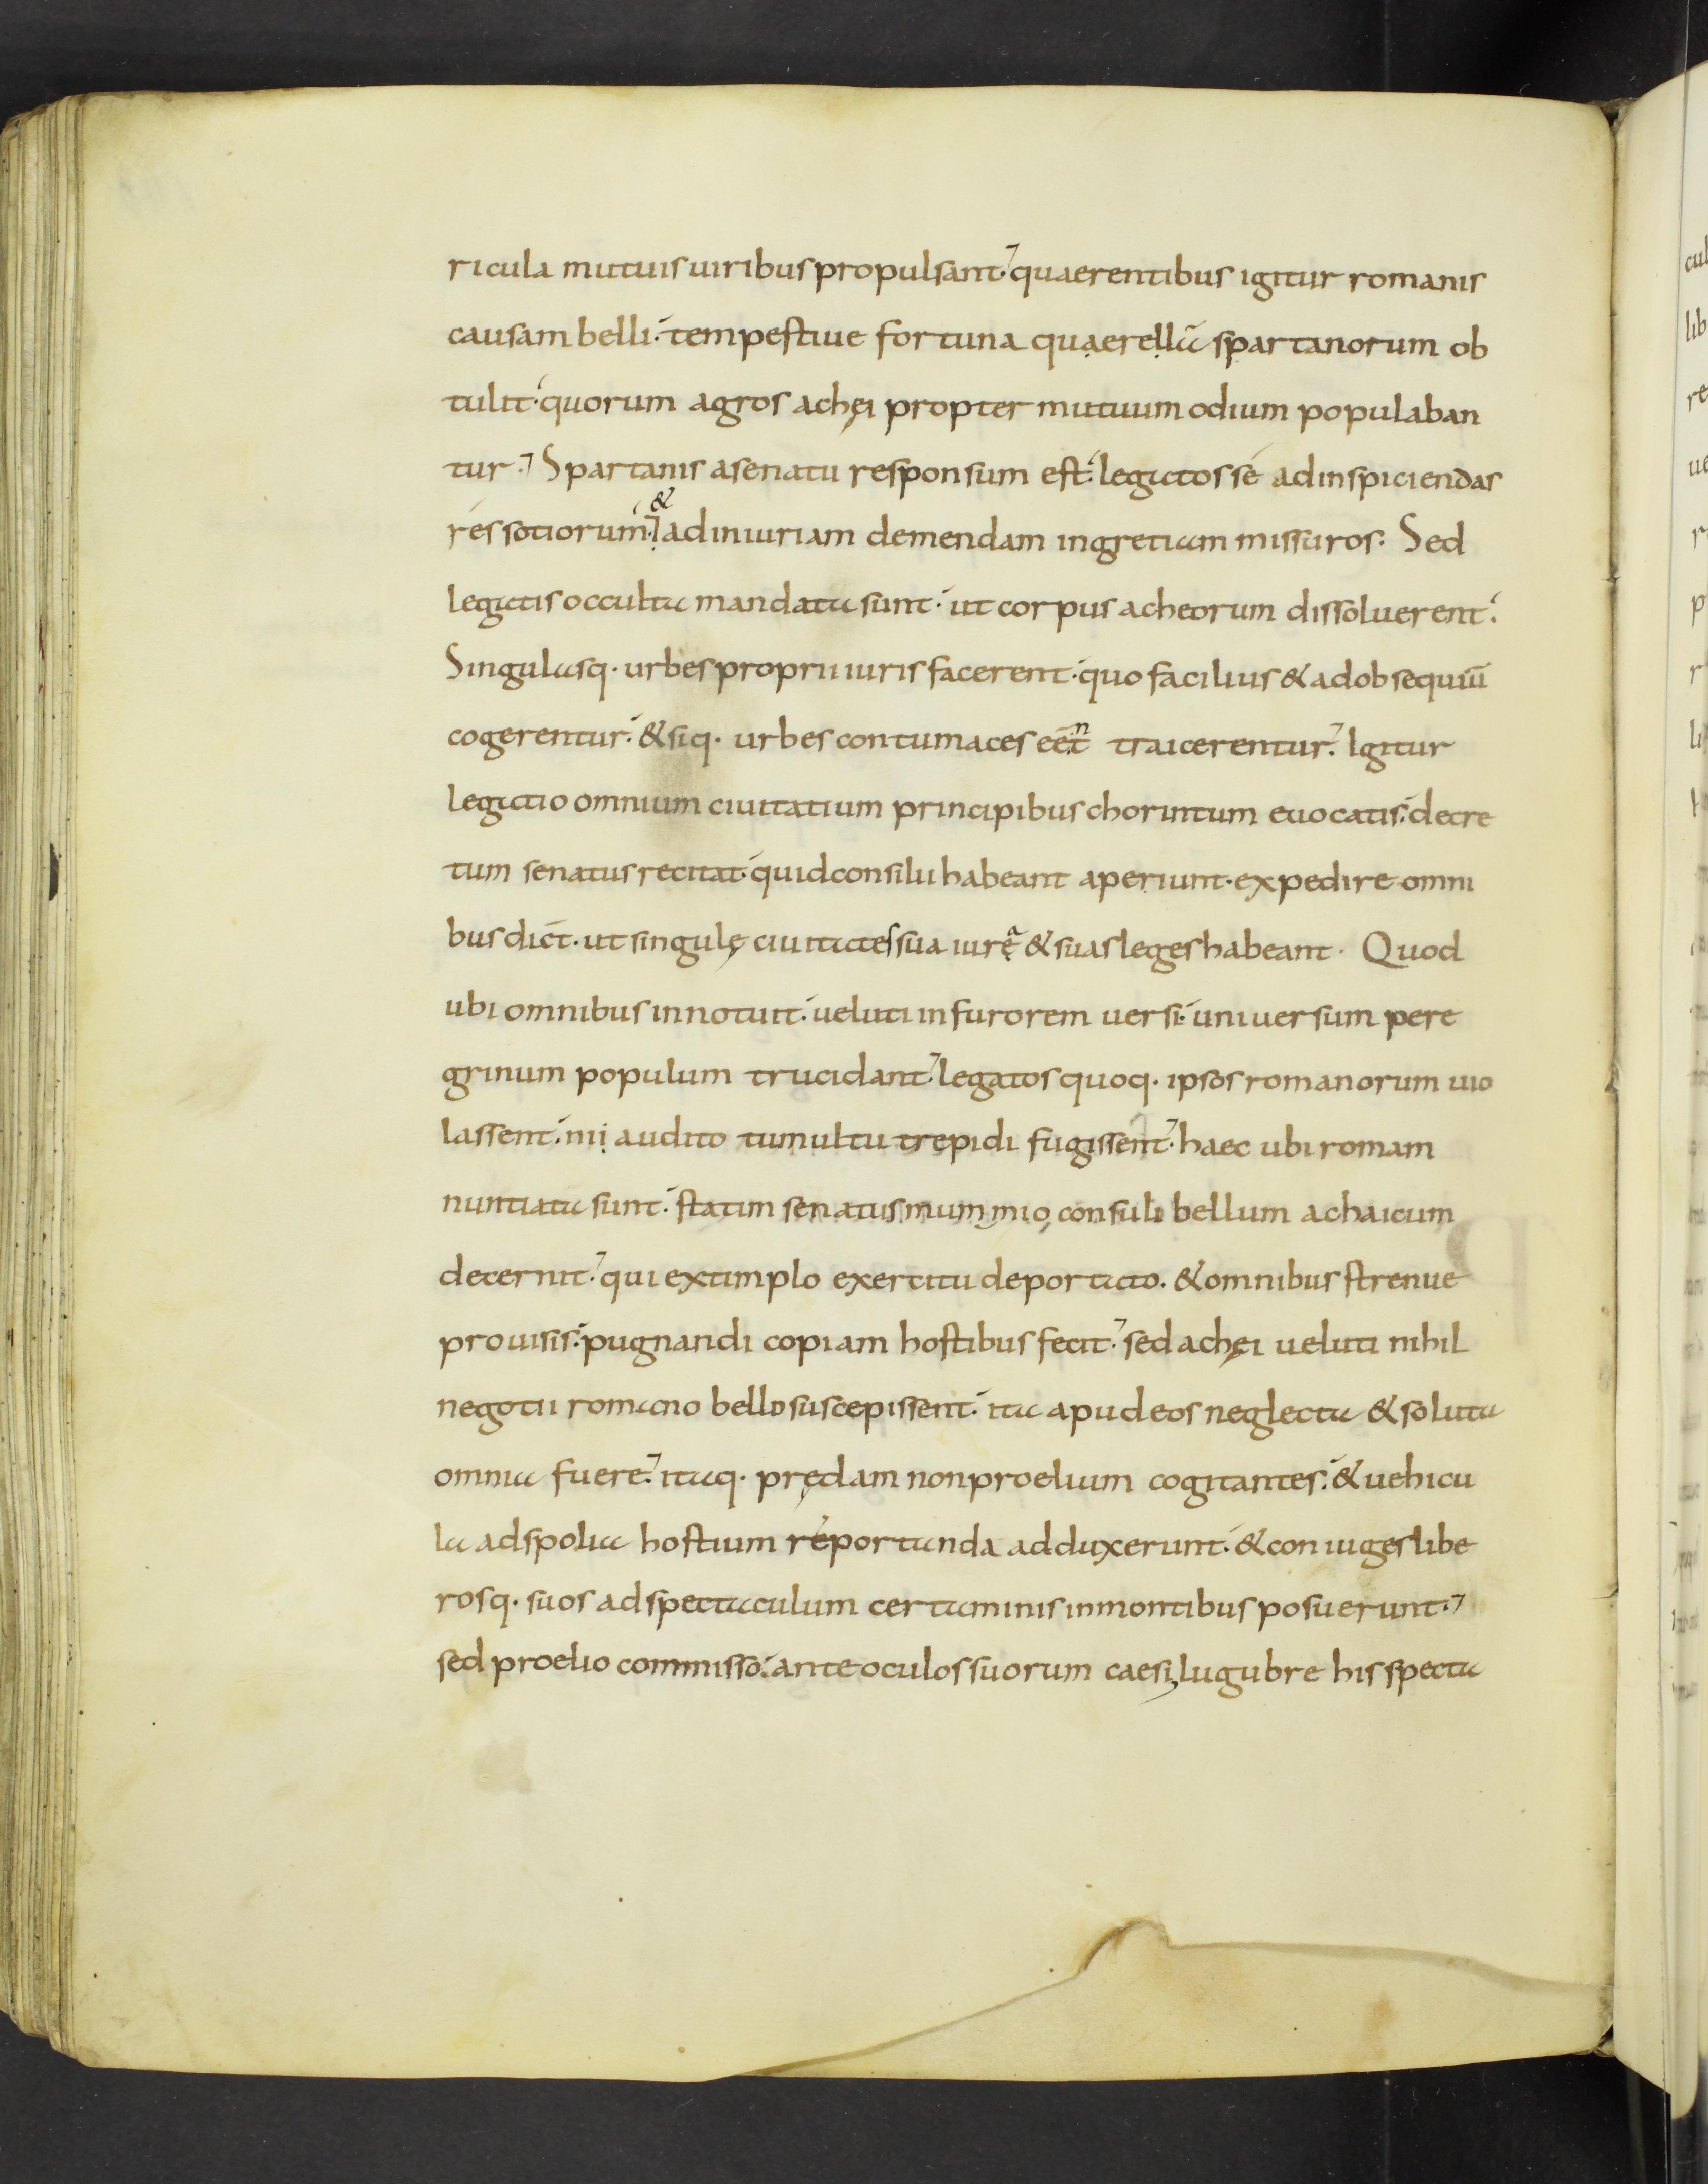 ricula mutuis uiribus propulsant. quaerentibus igitur romanis
causam belli. tempestiue fortuna quaerellā spartanorum ob
tulit. quorum agros achęi propter mutuum odium populaban
tur. Spartanis a senatu responsum est. legatos se ad inspiciendas
res sotiorum. & ad iniuriam demendam in gretiam missuros. Sed
legatis occulta mandata sunt. ut corpus acheorum dissoluerent.
Singulasq. urbes proprii iuris facerent. quo facilius & ad obsequiū
cogerentur. & siq. urbes contumaces eēnt traicerentur. Igitur
legatio omnium ciuitatium principibus chorintum euocatis. decre
tum senatus recitat. quid consilii habeant aperiunt. expedire omni
bus dic̄t. ut singulę ciuitates sua iurea & suas leges habeant. Quod
ubi omnibus innotuit. ueluti in furorem uersi. uniuersum pere
grinum populum trucidant. legatos quoq. ipsos romanorum uio
lassent. nii audito tumultu trepidi fugissent. haec ubi romam
nuntiata sunt. statim senatus mummio consuli bellum achaicum
decernit. qui extimplo exercitu deportato. & omnibus strenue
prouisis. pugnandi copiam hostibus fecit. sed achęi ueluti nihil
negotii romano bello suscepissent. ita apud eos neglecta & soluta
omnia fuere. itaq. prędam non proelium cogitantes. & uehicu
la ad spolia hostium reportanda adduxerunt. & coniuges libe
rosq. suos ad spectaculum certaminis in montibus posuerunt.
sed proelio commisso. ante oculos suorum caesi, lugubre his specta